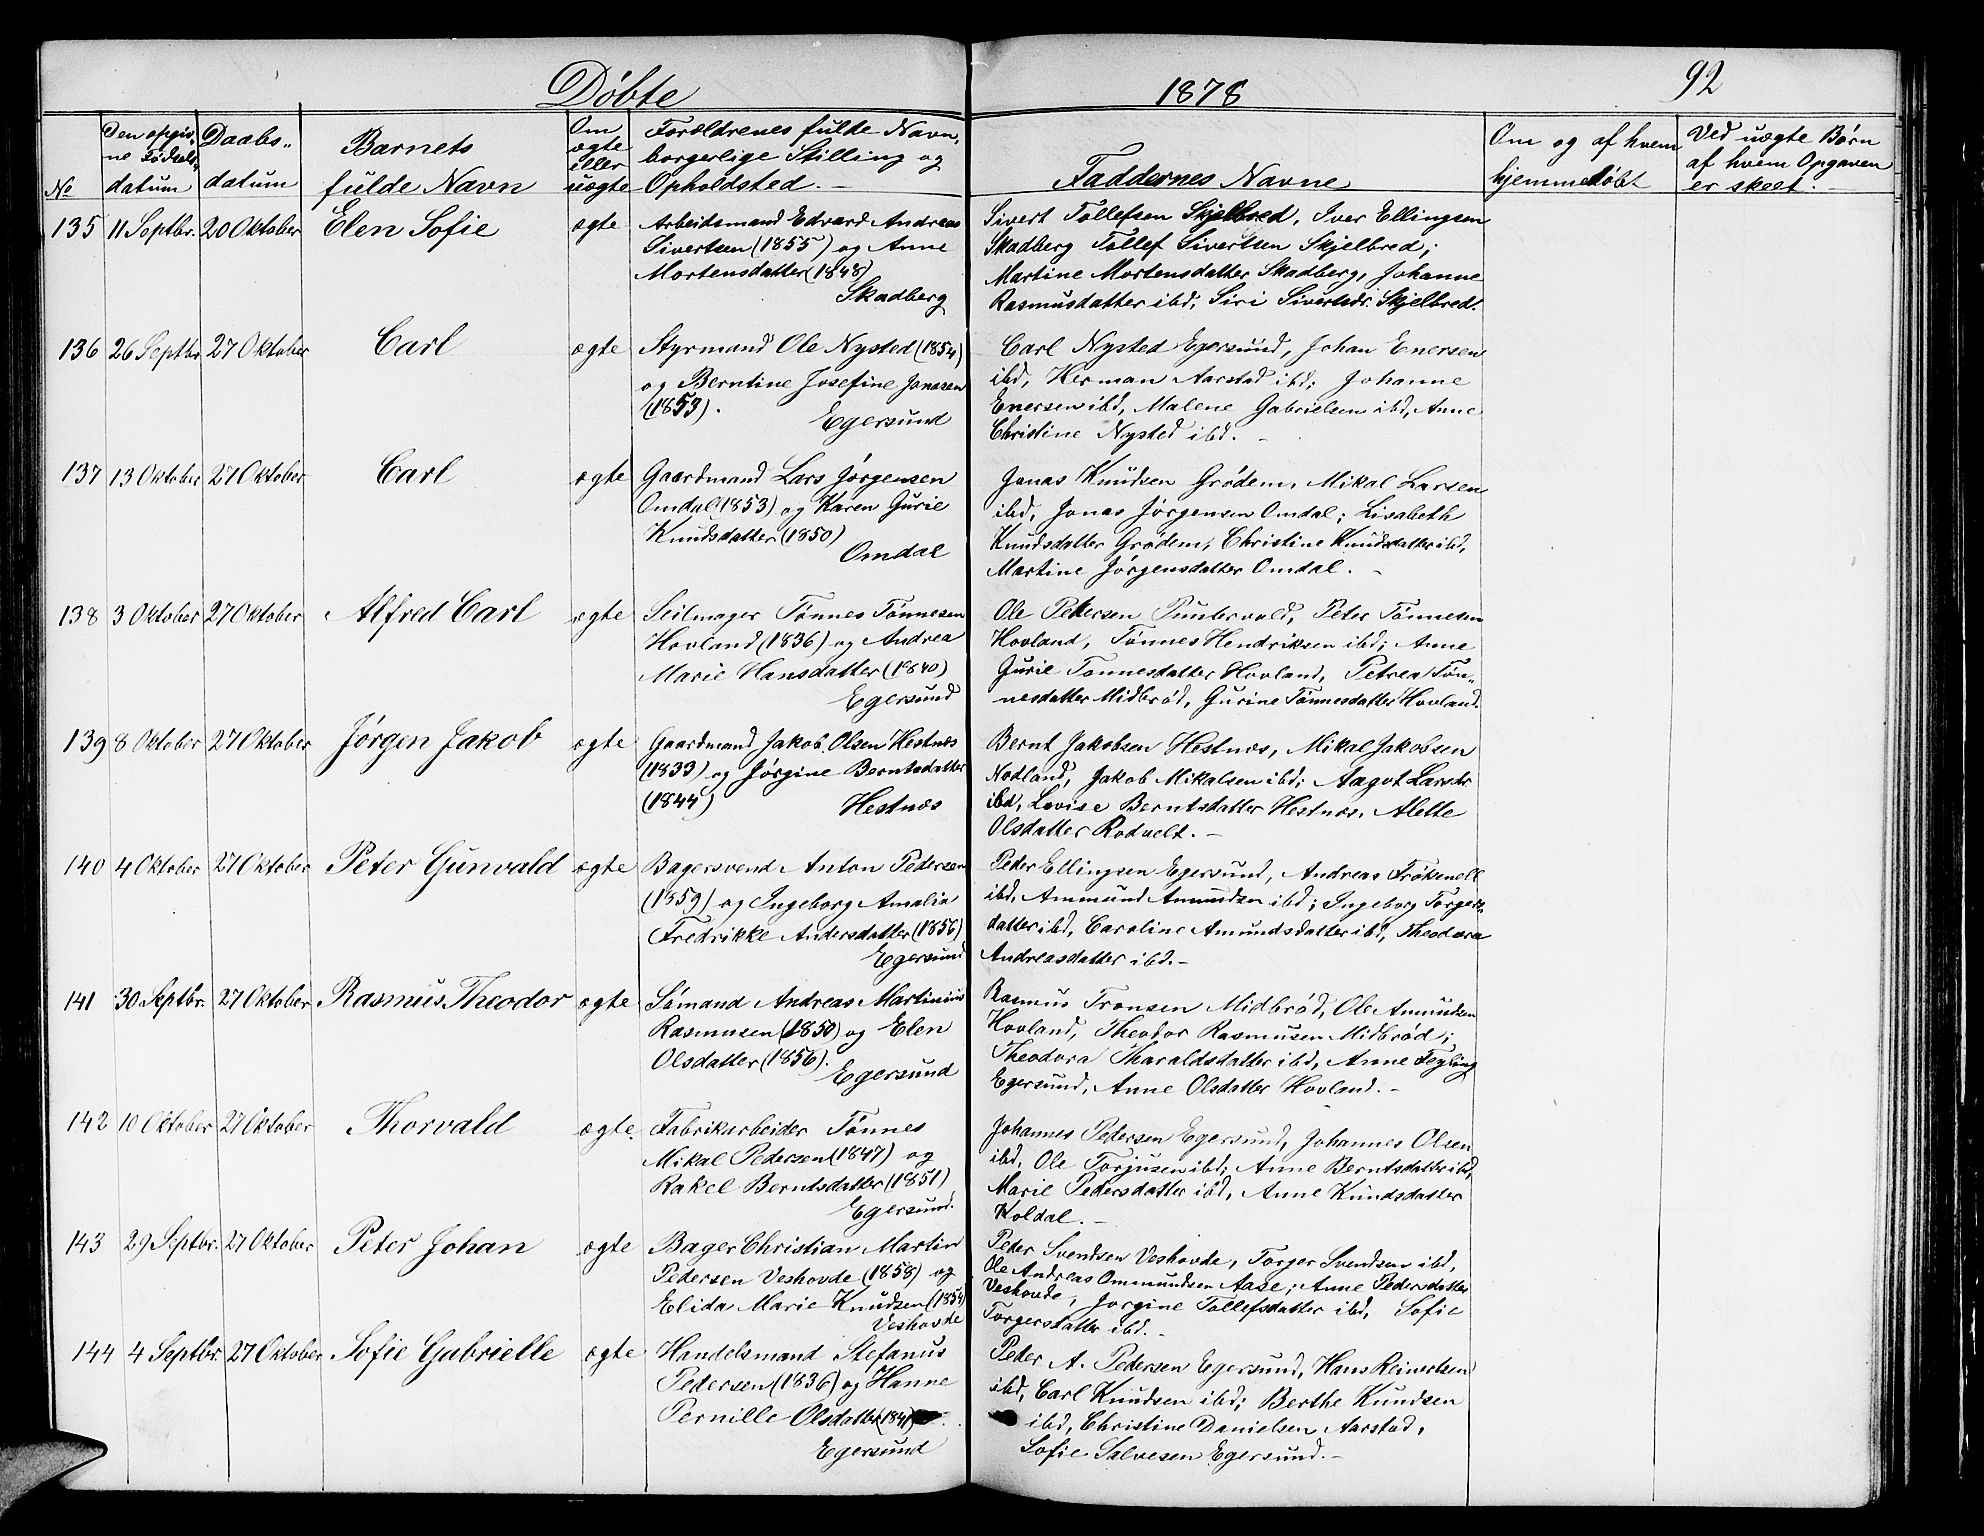 Døbte
1878
92
No
Den opgiv-
ne Fødsels-
datum
Daabs-
datum
Barnets
fulde Navn
Om
ægte
eller
uægte
Forældrenes fulde Navn,
borgerlige Stilling og
Opholdsted. —
Faddernes Navne
Om og af hvem
hjemmedøbt
Ved uægte Børn
af hvem Opgaven
er skeet. —
135 11 Septbr. 20 Oktober Elen Sofie ægte
Arbeidsmand Edvard Andreas
Sivertsen (1855) og Anne
Mortensdatter (1848)
Skadberg
Sivert Tollefsen Skjelbred, Iver Ellingsen
Skadberg Tollef Sivertsen Skjelbred;
Martine Mortensdatter Skadberg, Johanne
Rasmusdatter ibd, Siri Sivertsdr. Skjelbred.
136 26 Septbr. 27 Oktober Carl ægte
Styrmand Ole Nysted (1854)
og Berntine Josefine Jonasen
(1853).
Egersund
Carl Nysted Egersund, Johan Enersen
ibd, Herman Aarstad ibd; Johanne
Enersen ibd, Malene Gabrielsen ibd, Anne
Christine Nysted ibd. —
137 13 Oktober 27 Oktober Carl ægte
Gaardmand Lars Jørgensen
Omdal (1853) og Karen Gurie
Knudsdatter (1850)
Omdal
Jonas Knudsen Grødem, Mikal Larsen
ibd, Jonas Jørgensen Omdal; Lisabeth
Knudsdatter Grødem, Christine Knudsdatter ibd,
Martine Jørgensdatter Omdal. —
138 3 Oktober 27 Oktober Alfred Carl ægte
Seilmager Tønnes Tønnesen
Hovland (1836) og Andrea
Marie Hansdatter (1840)
Egersund
Ole Pedersen Puntervold, Peter Tønnesen
Hovland, Tønnes Hendriksen ibd; Anne
Gurie Tønnesdatter Hovland, Petrea Tøn-
nesdatter Midbrød, Gurine Tønnesdatter Hovland.
139 8 Oktober 27 Oktober Jørgen Jakob ægte
Gaardmand Jakob Olsen Hestnæs
(1833) og Jørgine Berntsdatter
(1844)
Hestnæs
Bernt Jakobsen Hestnæs, Mikal Jakobsen
Nodland, Jakob Mikalsen ibd; Aagot Larsdr.
ibd, Lovise Berntsdatter Hestnæs, Alette
Olsdatter Rodvelt. —
140 4 Oktober 27 Oktober Peter Gunvald ægte
Bagersvend Anton Pedersen
(1859) og Ingeborg Amalia
Fredrikke Andersdatter (1856)
Egersund
Peder Ellingsen Egersund, Andreas Frøksnell
ibd, Ammund Amundsen ibd; Ingeborg Torgers-
datter ibd, Caroline Amundsdatter ibd, Theodora
Andreasdatter ibd. —
141 30 Septbr. 27 Oktober Rasmus Theodor ægte
Sømand Andreas Martinius
Rasmusen (1850) og Elen
Olsdatter (1856).
Egersund
Rasmus Tronsen Midbrød, Ole Amundsen
Hovland, Theodor Rasmusen Midbrød;
Theodora Tharaldsdatter ibd, Anne Fayling
Egersund, Anne Olsdatter Hovland. —
142 10 Oktober 27 Oktober Thorvald ægte.
Fabrikarbeider Tønnes
Mikal Pedersen (1847) og
Rakel Berntsdatter (1851)
Egersund.
Johannes Pedersen Egersund, Johannes Olsen
ibd, Ole Torjusen ibd; Anne Berntsdatter ibd,
Marie Pedersdatter ibd, Anne Kundsdatter
Koldal. —
143 29 Septbr. 27 Oktober Peter Johan ægte
Bager Christian Martin
Pedersen Veshovde (1858) og
Elida Marie Knudsen (1854)
Veshovde
Peder Svendsen Veshovde, Torger Svendsen ibd,
Ole Andreas Ommundsen Aase; Anne Pedersdatter
Veshovde, Jorgine Tollefsdatter ibd, Sofie
Torgersdatter ibd. —
144 4 Septbr. 27 Oktober Sofie Gabrielle ægte
Handelsmand Stefanus
Pedersen (1836) og Hanne
Pernille Olsdatter (1841)
Egersund
Peder A. Pedersen Egersund, Hans Reinertsen
ibd, Carl Knudsen ibd; Berthe Kundsen
ibd, Christine Danielsen Aarstad,
Sofie Salvesen Egersund. —